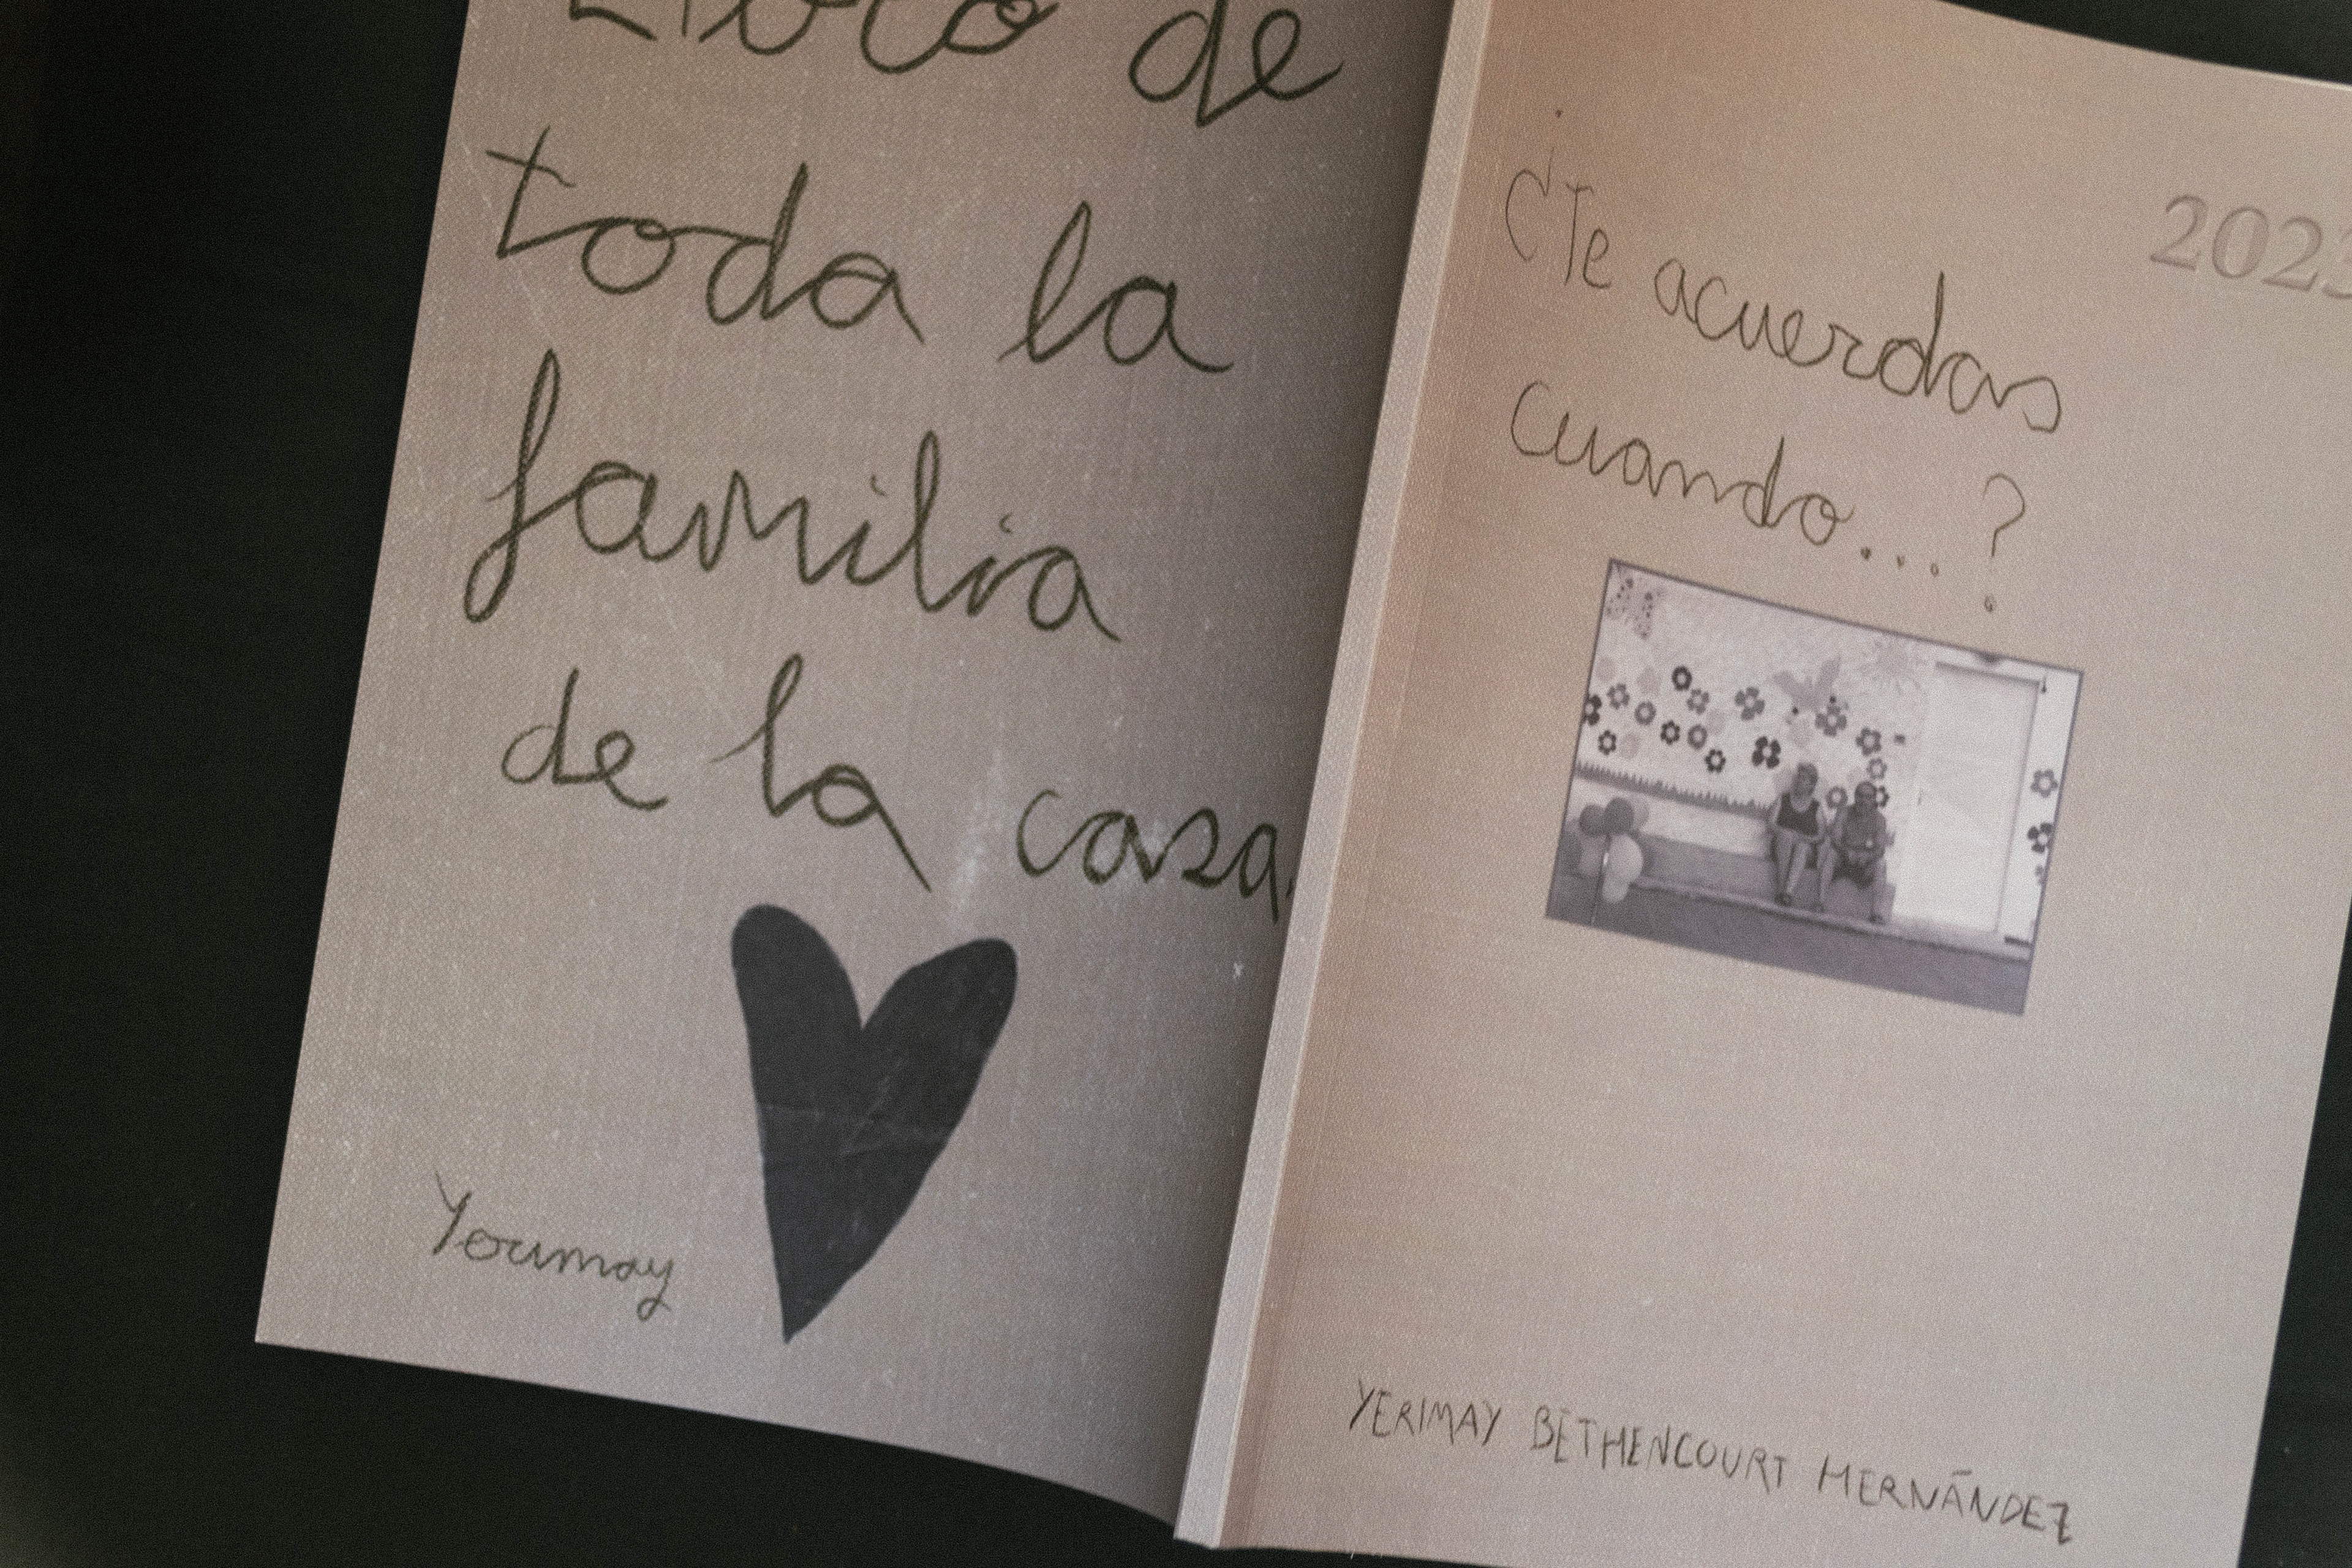 Libro de
toda la
familia
de la casa.
Yerimay
2023
¿Te acuerdas
cuando...?
YERIMAY BETHENCOURT HERNÁNDEZ